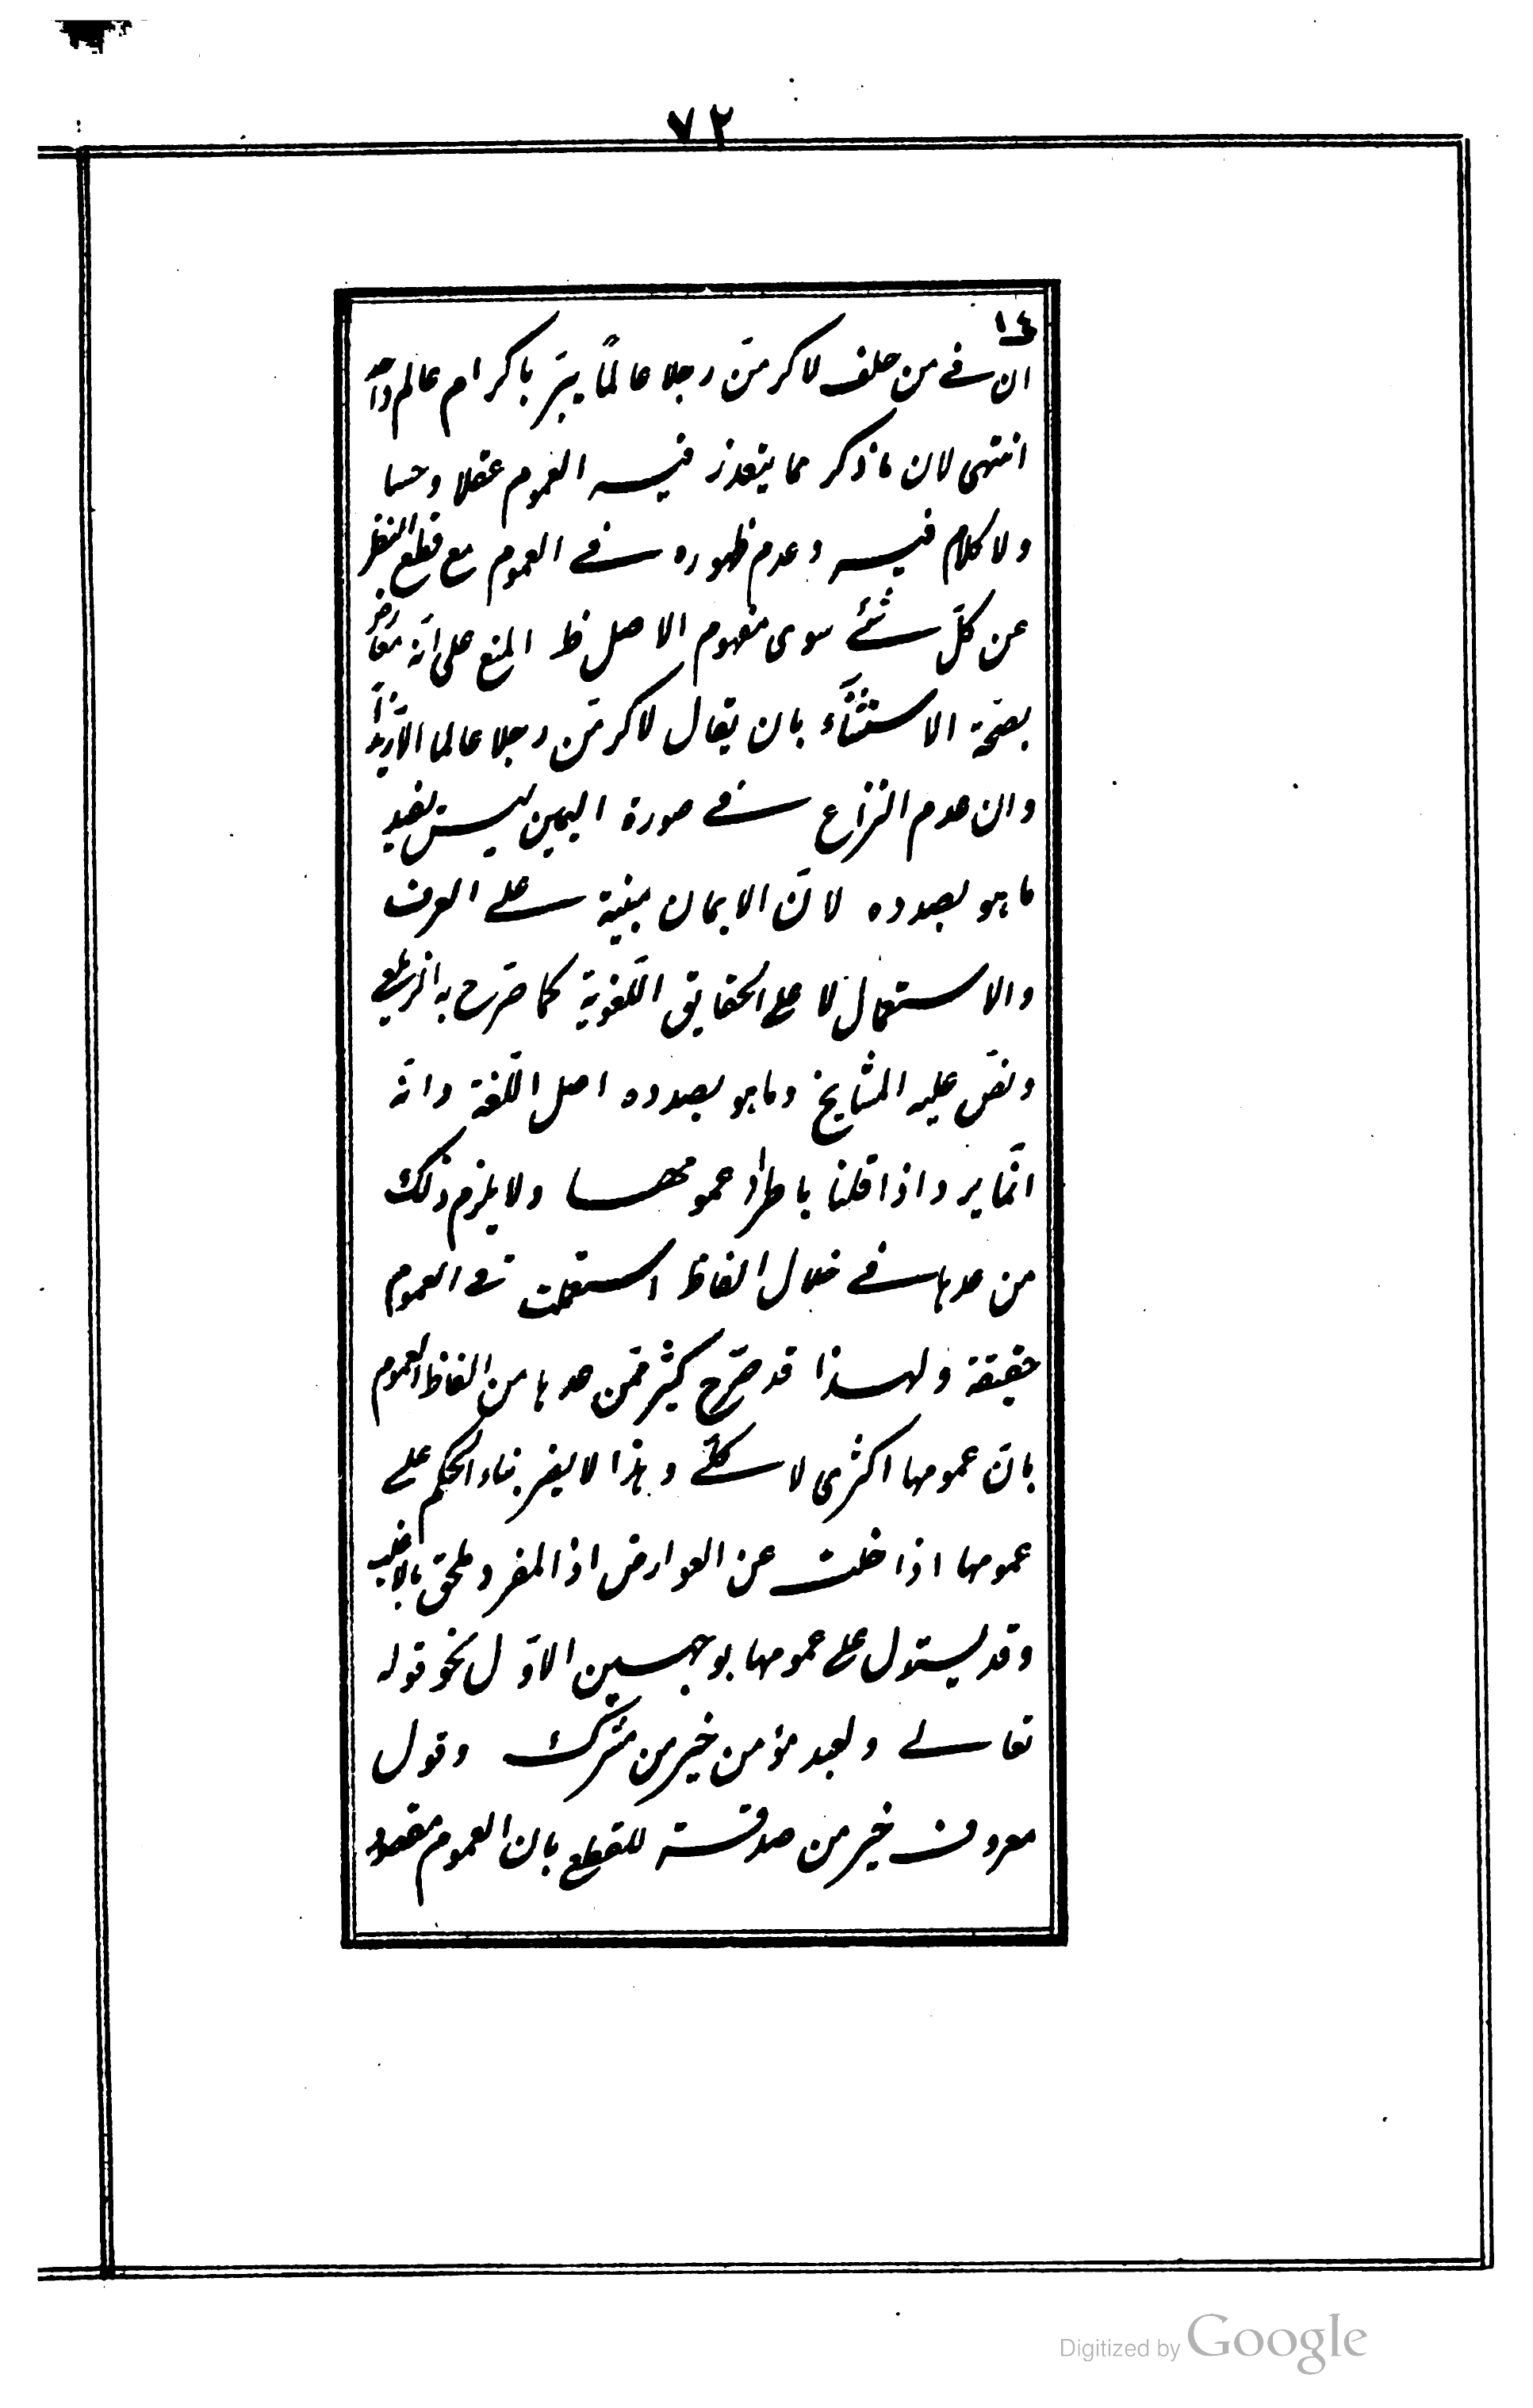 ٧٢
١٤
ان فے من حلف لاكرمنّ رجلا عالمًا يبرّ باكرام عالم واحد
انتهى لان ماذكر مما يتعذر فيه العموم عقلا وحسا
ولا كلام فيه وعدم ظهوره فے العموم مع قطع النظر
عن كلّ شئے سوى مفهوم الاصل ظ المنع على انّه معارض
بصحّة الاستثنآء بان يقال لاكرمنّ رجلا عالما الّا زيداً
وان عدم النزاع فے صورة اليمين ليس يفيد
ما هو بصدده لانّ الايمان مبنية علے العرف
والاستعمال لا علے الحقايق اللّغوية كما صرّح به الزيلعے
ونصّ عليه المشايخ وما هو بصدده اصل اللّغة وانّه
انّما يرد اذا قلنا باطراد عمومها ولا يلزم ذلك
من عدها فے خلال الفاظ استعملت فے العموم
حقيقة ولهذا قد صرّح كثير ممّن عدها من الفاظ العموم
بانّ عمومها اكثرى لا كلّے وهذا لا يضر بناء الحكم علے
عمومها اذا خلت عن العوارض اذ المفرد ملحق بالاغلب
وقد يستدل علے عمومها بوجهين الاوّل نحو قوله
تعالے ولعبد مؤمن خير من مشرك وقول
معروف خير من صدقة للقطع بان العموم مقصود
Digitized by Google